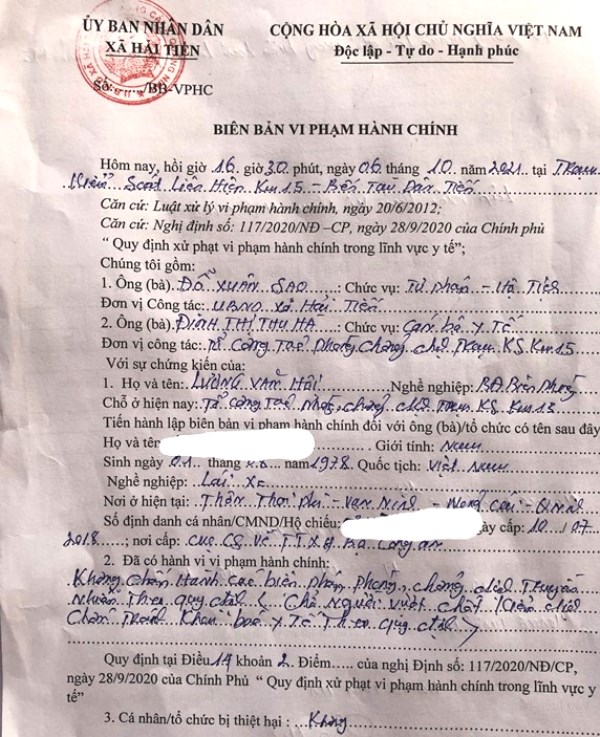 ỦY BAN NHÂN DÂN
XÃ HẢI TIẾN
CỘNG HÒA XÃ HỘI CHỦ NGHĨA VIỆT NAM
Độc lập - Tự do - Hạnh phúc
Số:....../BB-VPHC
BIÊN BẢN VI PHẠM HÀNH CHÍNH
Hôm nay, hồi giờ 16 giờ 30 phút, ngày 06 tháng 10 năm 2021 tại Trạm
Kiểm Soát Liên Hiện Km 15 - Bến Tàu Dân Tiến
Căn cứ: Luật xử lý vi phạm hành chính, ngày 20/6/2012;
Căn cứ: Nghị định số: 117/2020/NĐ –CP, ngày 28/9/2020 của Chính phủ
“ Quy định xử phạt vi phạm hành chính trong lĩnh vực y tế”;
Chúng tôi gồm:
1. Ông (bà). ĐỖ XUÂN SAO Chức vụ: Tư pháp - Hộ Tịch
Đơn vị Công tác: UBND xã Hải Tiến
2. Ông (bà). ĐINH THỊ THU HÀ Chức vụ: Cán bộ y Tế
Đơn vị công tác: Tổ Công Tác phòng chống dịch Trạm KS Km 15
Với sự chứng kiến của:
1. Họ và tên: LƯƠNG VĂN Hải Nghề nghiệp: BĐ Biên Phòng
Chỗ ở hiện nay: Tổ công Tác phòng chống dịch Trạm KS Km 15
Tiến hành lập biên bản vi phạm hành chính đối với ông (bà)/tổ chức có tên sau đây
Họ và tên Giới tính: Nam
Sinh ngày 01 tháng năm 1978. Quốc tịch: Việt Nam
Nghề nghiệp: Lái xe
Nơi ở hiện tại: Thôn - Vạn Ninh - Móng Cái - Q.Ninh
Số định danh cá nhân/CMND/Hộ chiếu: ngày cấp: 10 / 07
2018; nơi cấp: cục CS về T.T.X.H Bộ Công an
2. Đã có hành vi vi phạm hành chính:
Không chấp Hành các biên pháp phòng, chống dịch Truyền
Nhiễm Theo quy định ( Chở Người vượt chốt kiểm dịch
Khai báo y Tế Theo quy định )
Quy định tại Điều 14 khoản 2. Điểm...... của nghị Định số: 117/2020/NĐ/CP,
ngày 28/9/2020 của Chính Phủ “ Quy định xử phạt vi phạm hành chính trong lĩnh vực y
tế”
3. Cá nhân/tổ chức bị thiệt hại : Không